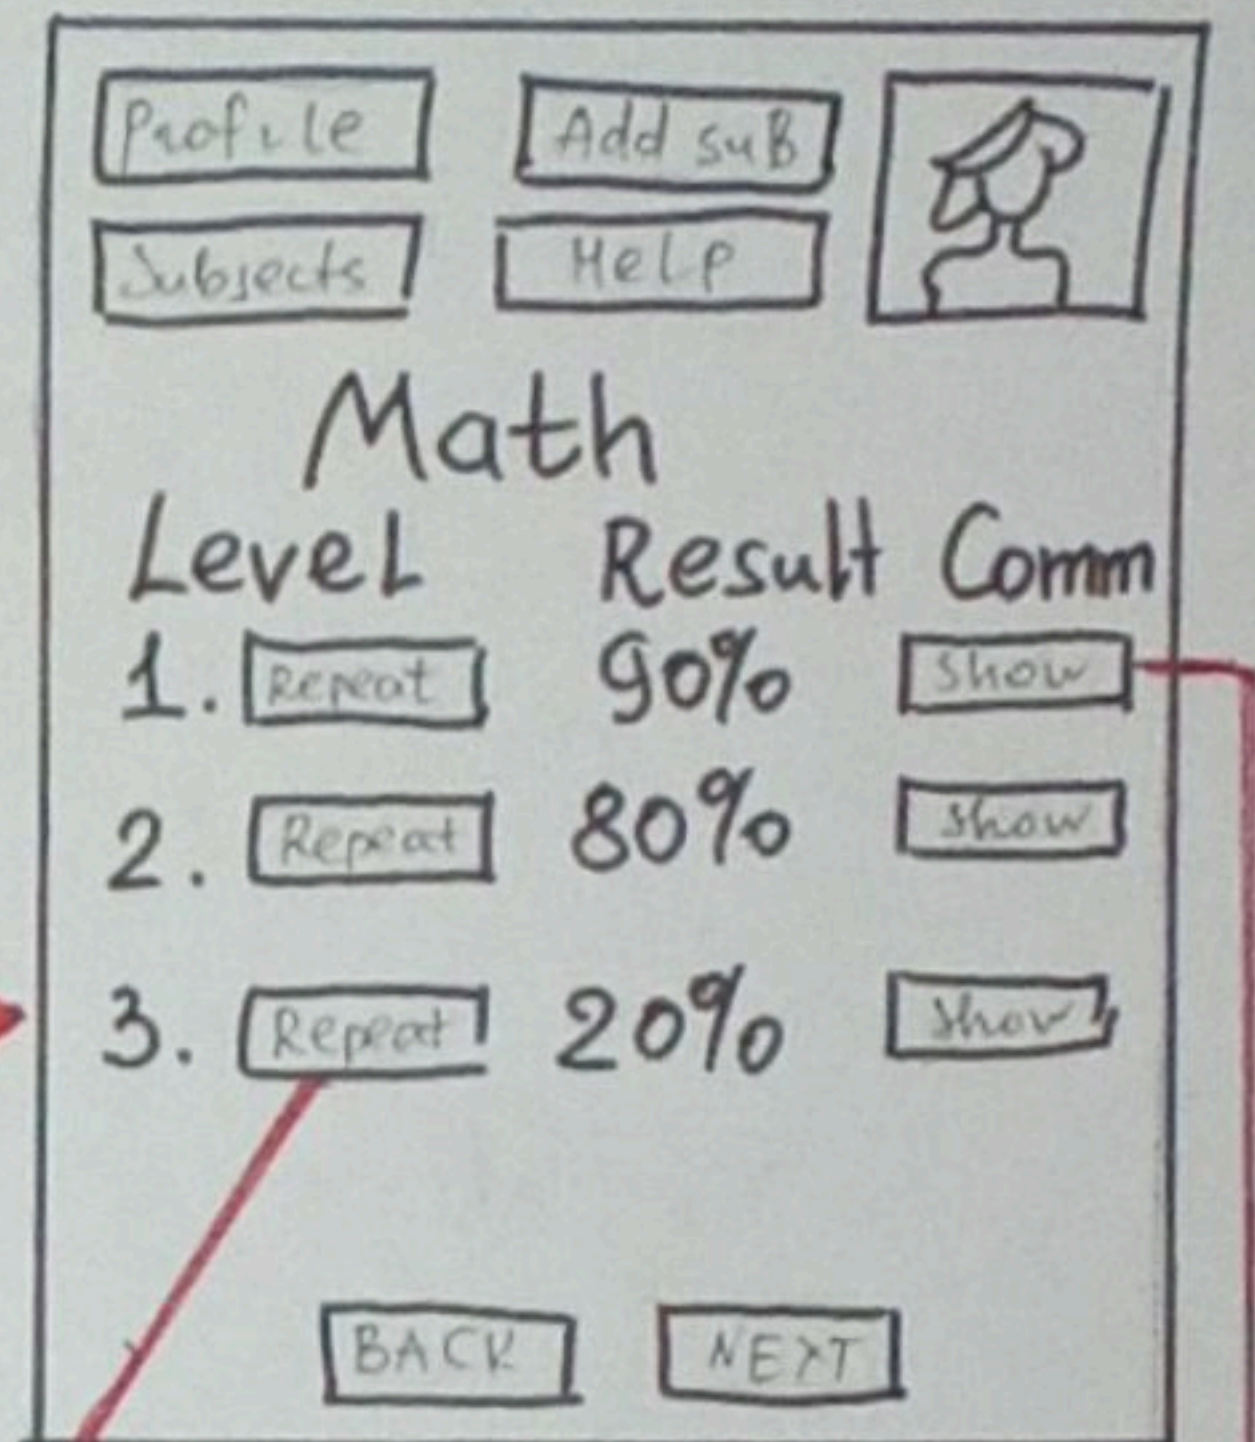 Profile Add suB
Subjects Help
Math
Level Result Comm
1. Repeat 90% Show
2. Repeat 80% Show
3. Repeat 20% Show
BACK NEXT